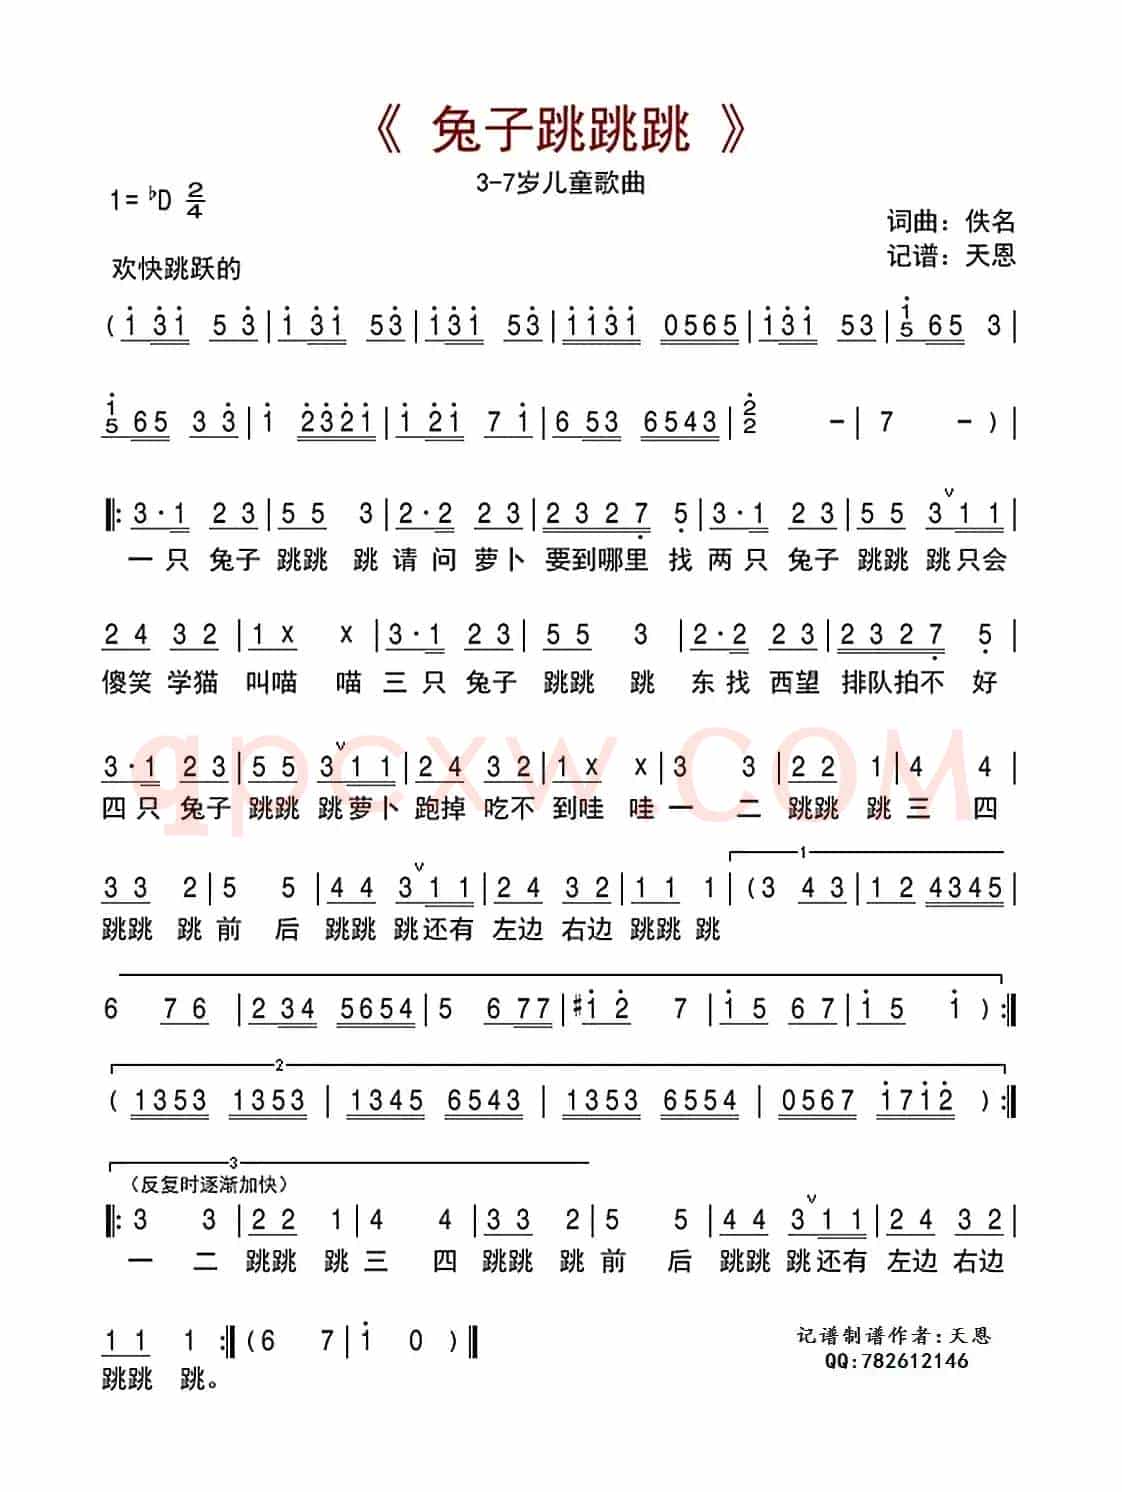 《 兔子跳跳跳 》
3-7岁儿童歌曲
1= ♭D 2/4
词曲：佚名
记谱：天恩
欢快跳跃的
( i 3̇i 5 3̇ | i 3̇i 53̇ | i3̇i 53̇ | ii3̇i 0565 | i3̇i 53 | i/5 65 3 |
i/5 65 3 3̇ | i 2̇3̇2̇i | i 2̇i 7 i | 6 53 6543 | 2̇/2 － | 7 － ) |
‖: 3·1 2 3 | 5 5 3 | 2·2 2 3 | 2 3 2 7̣ 5̣ | 3·1 2 3 | 5 5 3 ∨ 1 1 |
一只 兔子 跳跳 跳 请问 萝卜 要到哪里 找 两只 兔子 跳跳 跳只会
2 4 3 2 | 1 x x | 3·1 2 3 | 5 5 3 | 2·2 2 3 | 2 3 2 7̣ 5̣ |
傻笑 学猫 叫喵 喵 三只 兔子 跳跳 跳 东找 西望 排队拍不 好
3·1 2 3 | 5 5 3 ∨ 1 1 | 2 4 3 2 | 1 x x | 3 3 | 2 2 1 | 4 4 |
四只 兔子 跳跳 跳萝卜 跑掉 吃不 到哇 哇 一 二 跳跳 跳 三 四
qpcxw.COM
1
3 3 2 | 5 5 | 4 4 3 ∨ 1 1 | 2 4 3 2 | 1 1 1 | (3 4 3 | 1 2 4345 |
跳跳 跳 前 后 跳跳 跳还有 左边 右边 跳跳 跳
6 7 6 | 2 34 5654 | 5 6 77 | #i 2̇ 7 | i 5 6 7 | i 5 i ) :‖
2
( 1353 1353 | 1345 6543 | 1353 6554 | 0567 i7i2̇ ) :‖
3
（反复时逐渐加快）
‖: 3 3 | 2 2 1 | 4 4 | 3 3 2 | 5 5 | 4 4 3 ∨ 1 1 | 2 4 3 2 |
一 二 跳跳 跳 三 四 跳跳 跳 前 后 跳跳 跳还有 左边 右边
1 1 1 :‖ (6 7 | i 0 ) ‖
跳跳 跳。
记谱制谱作者：天恩
QQ:782612146